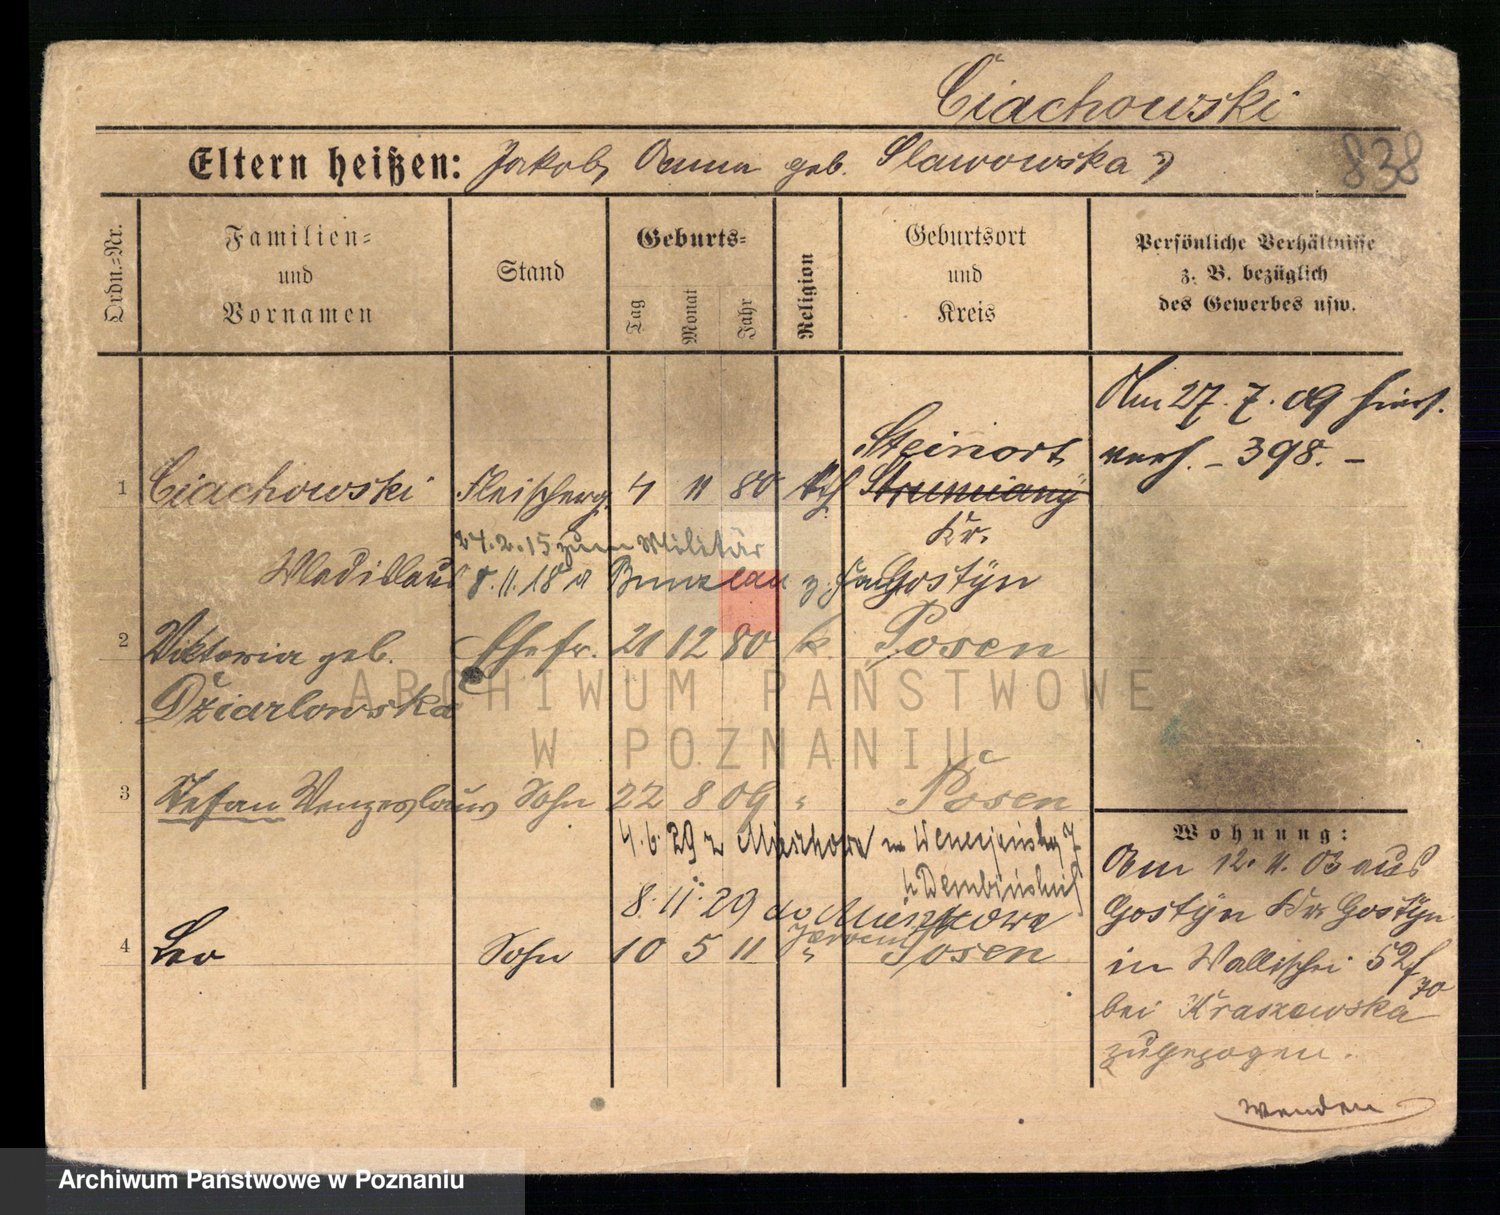 Ciachowski
838
Eltern heißen: Jakob, Anna geb. Slawowska
Ordn.-Nr.
Familien-
und
Vornamen
Stand
Geburts-
Tag
Monat
Jahr
Religion
Geburtsort
und
Kreis
Persönliche Verhältnisse
z. B. bezüglich
des Gewerbes usw.
Am 27.7.09
verh. - 398. -
Steinort
1 Ciachowski Fleischerg. 4 11 80 kth Strumiany
Kr.
24.2.15 zum Militär
Wladislaus 8.11.18 v Bunzlau z. Gostÿn
2 Viktoria geb. Ehefr. 21 12 80 k. Posen
Dziarlowska
3 Stefan Wenzeslaus Sohn 22 8 09 " Posen
4.6.29 z
8.11.29
4 Leo Sohn 10 5 11 " Posen
Wohnung:
Am 12.11.03 aus
Gostÿn Kr. Gostÿn
in Wallischei 52
70
bei Kraszewska
zugezogen.
wenden
ARCHIWUM PAŃSTWOWE
W POZNANIU
Archiwum Państwowe w Poznaniu